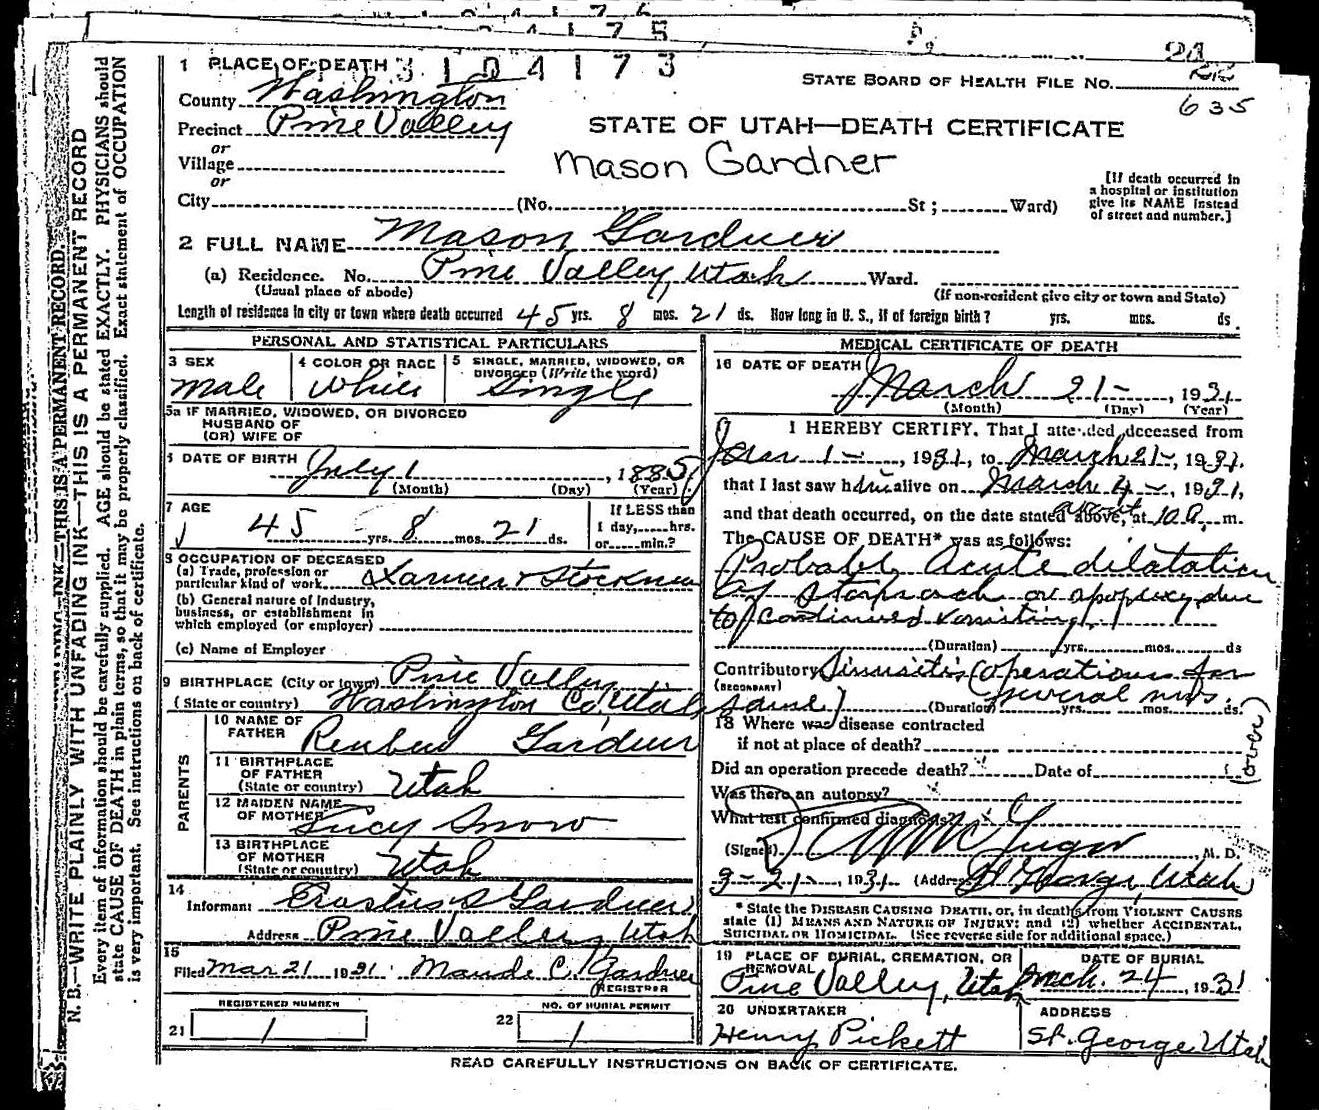 24
22
635
1 PLACE OF DEATH 3104173
STATE BOARD OF HEALTH FILE NO.
County Washington
Precinct Pine Valley
STATE OF UTAH—DEATH CERTIFICATE
or
Village
Mason Gardner
or
City (No. St; Ward)
[If death occurred in
a hospital or institution
give its NAME instead
of street and number.]
2 FULL NAME Mason Gardner
(a) Residence. No. Pine Valley, Utah Ward.
(Usual place of abode) (If non-resident give city or town and State)
Length of residence in city or town where death occurred 45 yrs. 8 mos. 21 ds. How long in U. S., if of foreign birth? yrs. mos. ds.
PERSONAL AND STATISTICAL PARTICULARS
3 SEX
Male
4 COLOR OR RACE
White
5 SINGLE, MARRIED, WIDOWED, OR
DIVORCED (Write the word)
Single
5a IF MARRIED, WIDOWED, OR DIVORCED
HUSBAND OF
(OR) WIFE OF
6 DATE OF BIRTH July 1, 1885
(Month) (Day) (Year)
7 AGE
45 yrs. 8 mos. 21 ds.
If LESS than
1 day, hrs.
or min.?
8 OCCUPATION OF DECEASED
(a) Trade, profession or
particular kind of work Farmer & Stockman
(b) General nature of Industry,
business, or establishment in
which employed (or employer)
(c) Name of Employer
9 BIRTHPLACE (City or town) Pine Valley
(State or country) Washington Co. Utah
PARENTS
10 NAME OF
FATHER Reuben Gardner
11 BIRTHPLACE
OF FATHER
(State or country) Utah
12 MAIDEN NAME
OF MOTHER Lucy Snow
13 BIRTHPLACE
OF MOTHER
(State or country) Utah
14
Informant Erastus S Gardner
Address Pine Valley Utah
15
Filed Mar 21 1931 Maude C. Gardner
REGISTRAR
REGISTERED NUMBER
21 1
NO. OF BURIAL PERMIT
22 1
MEDICAL CERTIFICATE OF DEATH
16 DATE OF DEATH
March 21-, 1931
(Month) (Day) (Year)
I HEREBY CERTIFY, That I attended deceased from
Jan 1-, 1931, to March 21-, 1931.
that I last saw him alive on March 4-, 1931,
and that death occurred, on the date stated above, at about 10 a. m.
The CAUSE OF DEATH* was as follows:
Probably Acute dilatation
of stomach or apoplexy due
to continued vomiting.
(Duration) yrs. mos. ds
Contributory Sinusitis (operations for
(SECONDARY) several mos.
same) (Duration) yrs. mos. ds.
(over)
18 Where was disease contracted
if not at place of death?
Did an operation precede death? Date of
Was there an autopsy?
What test confirmed diagnosis?
(Signed) McGregor M. D.
3-21-, 1931 (Address) St George, Utah
* State the DISEASE CAUSING DEATH, or, in deaths from VIOLENT CAUSES
state (1) MEANS AND NATURE OF INJURY; and (2) whether ACCIDENTAL,
SUICIDAL OR HOMICIDAL. (See reverse side for additional space.)
19 PLACE OF BURIAL, CREMATION, OR
REMOVAL
Pine Valley, Utah
DATE OF BURIAL
Mch. 24, 1931
20 UNDERTAKER
Henry Pickett
ADDRESS
St. George Utah
READ CAREFULLY INSTRUCTIONS ON BACK OF CERTIFICATE.
N. B.—WRITE PLAINLY WITH UNFADING INK—THIS IS A PERMANENT RECORD
Every item of information should be carefully supplied. AGE should be stated EXACTLY. PHYSICIANS should
state CAUSE OF DEATH in plain terms, so that it may be properly classified. Exact statement of OCCUPATION
is very important. See instructions on back of certificate.
INK—THIS IS A PERMANENT RECORD.